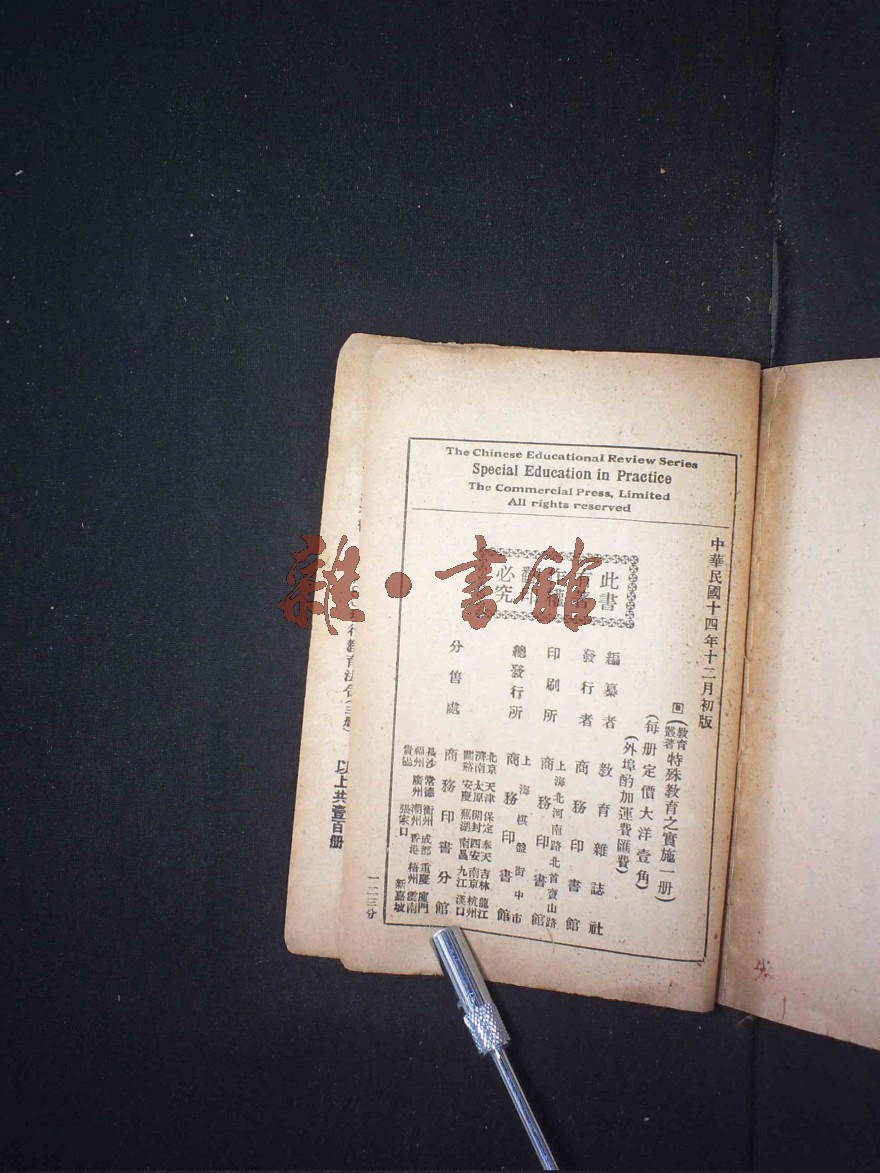 The Chinese Educational Review Series
Special Education in Practice
The Commercial Press, Limited
All rights reserved
中華民國十四年十二月初版
(教育叢著特殊教育之實施一册)
(每册定價大洋壹角)
(外埠酌加運費匯費)
此書
有著
作權
翻印
必究
編纂者 教育雜誌社
發行者 商務印書館
印刷所 上海北河南路北首寶山路 商務印書館
總發行所 上海棋盤街中市 商務印書館
分售處 商務印書分館
北京 天津 保定 奉天 吉林 龍江
濟南 太原 開封 西安 南京 杭州
蘭谿 安慶 蕪湖 南昌 九江 漢口
長沙 常德 衡州 成都 重慶 廈門
福州 廣州 潮州 香港 梧州 雲南
貴陽 張家口 新嘉坡
一二三分
行教育法令(三册)
以上共壹百册
雜·書館